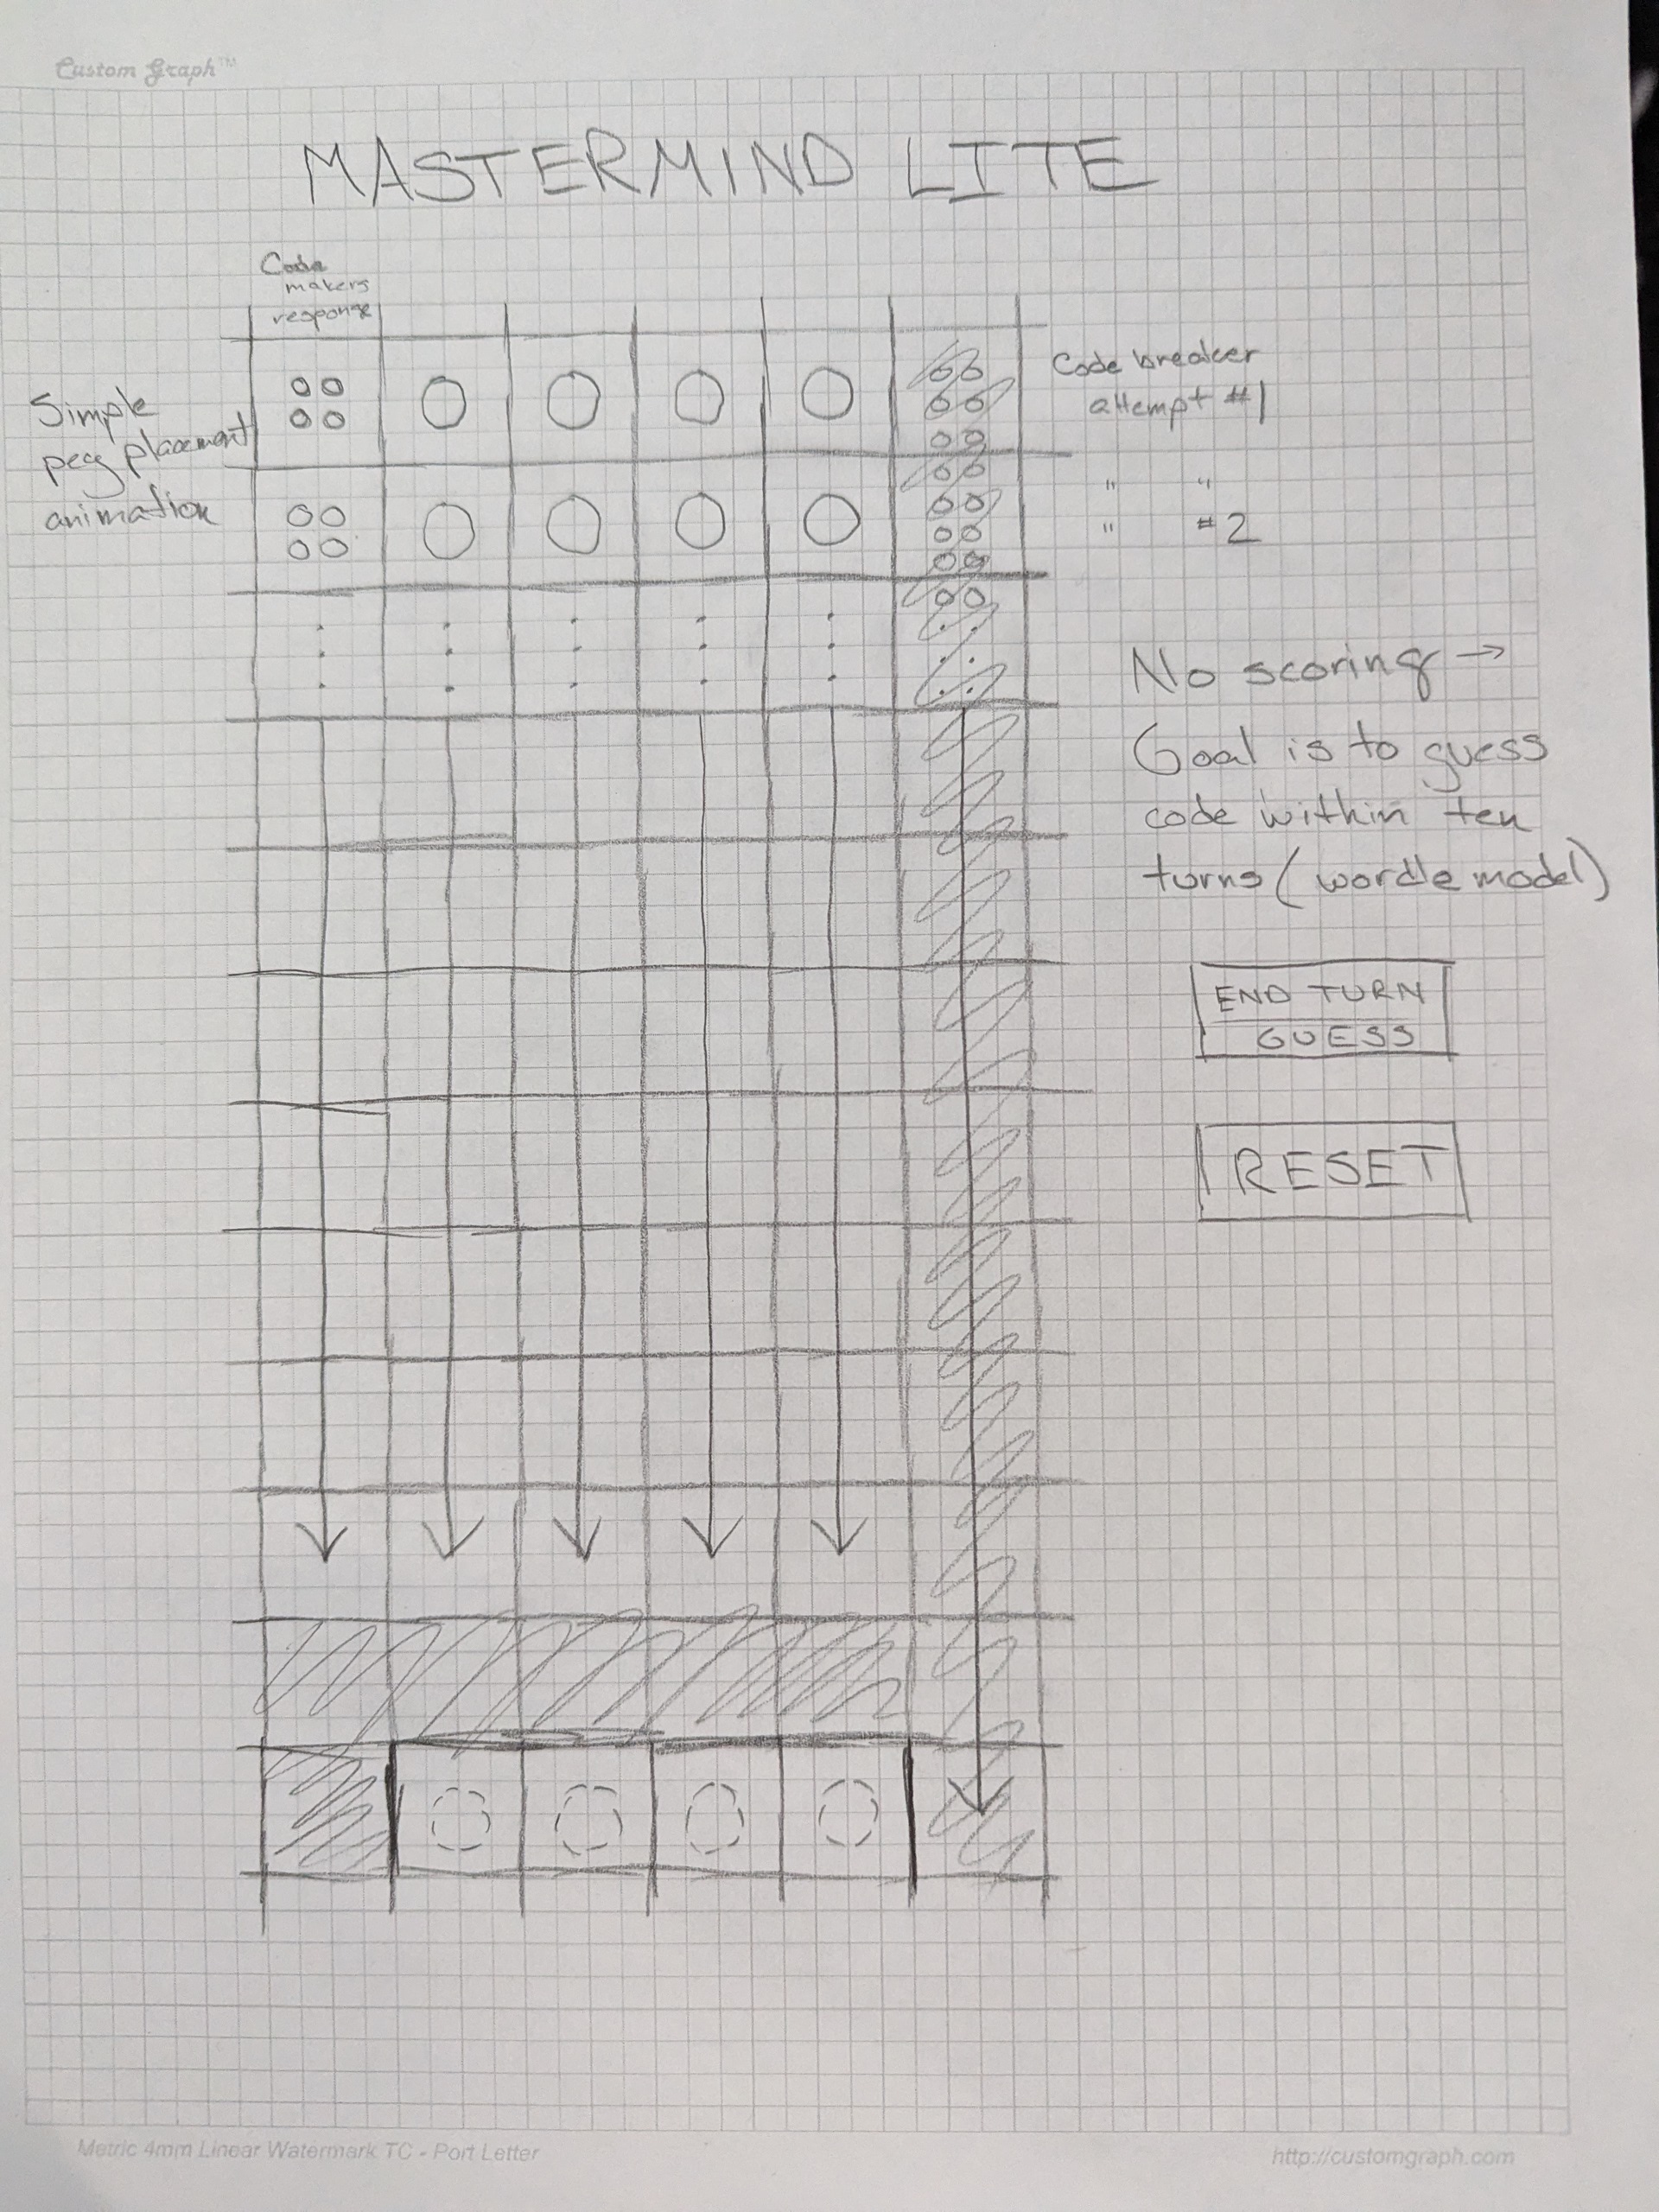 Custom Graph™
MASTERMIND LITE
Code
makers
response
Simple
peg placement
animation
Code breaker
attempt #1
" "
" #2
No scoring →
Goal is to guess
code within ten
turns (wordle model)
END TURN
GUESS
RESET
Metric 4mm Linear Watermark TC - Port Letter
http://customgraph.com